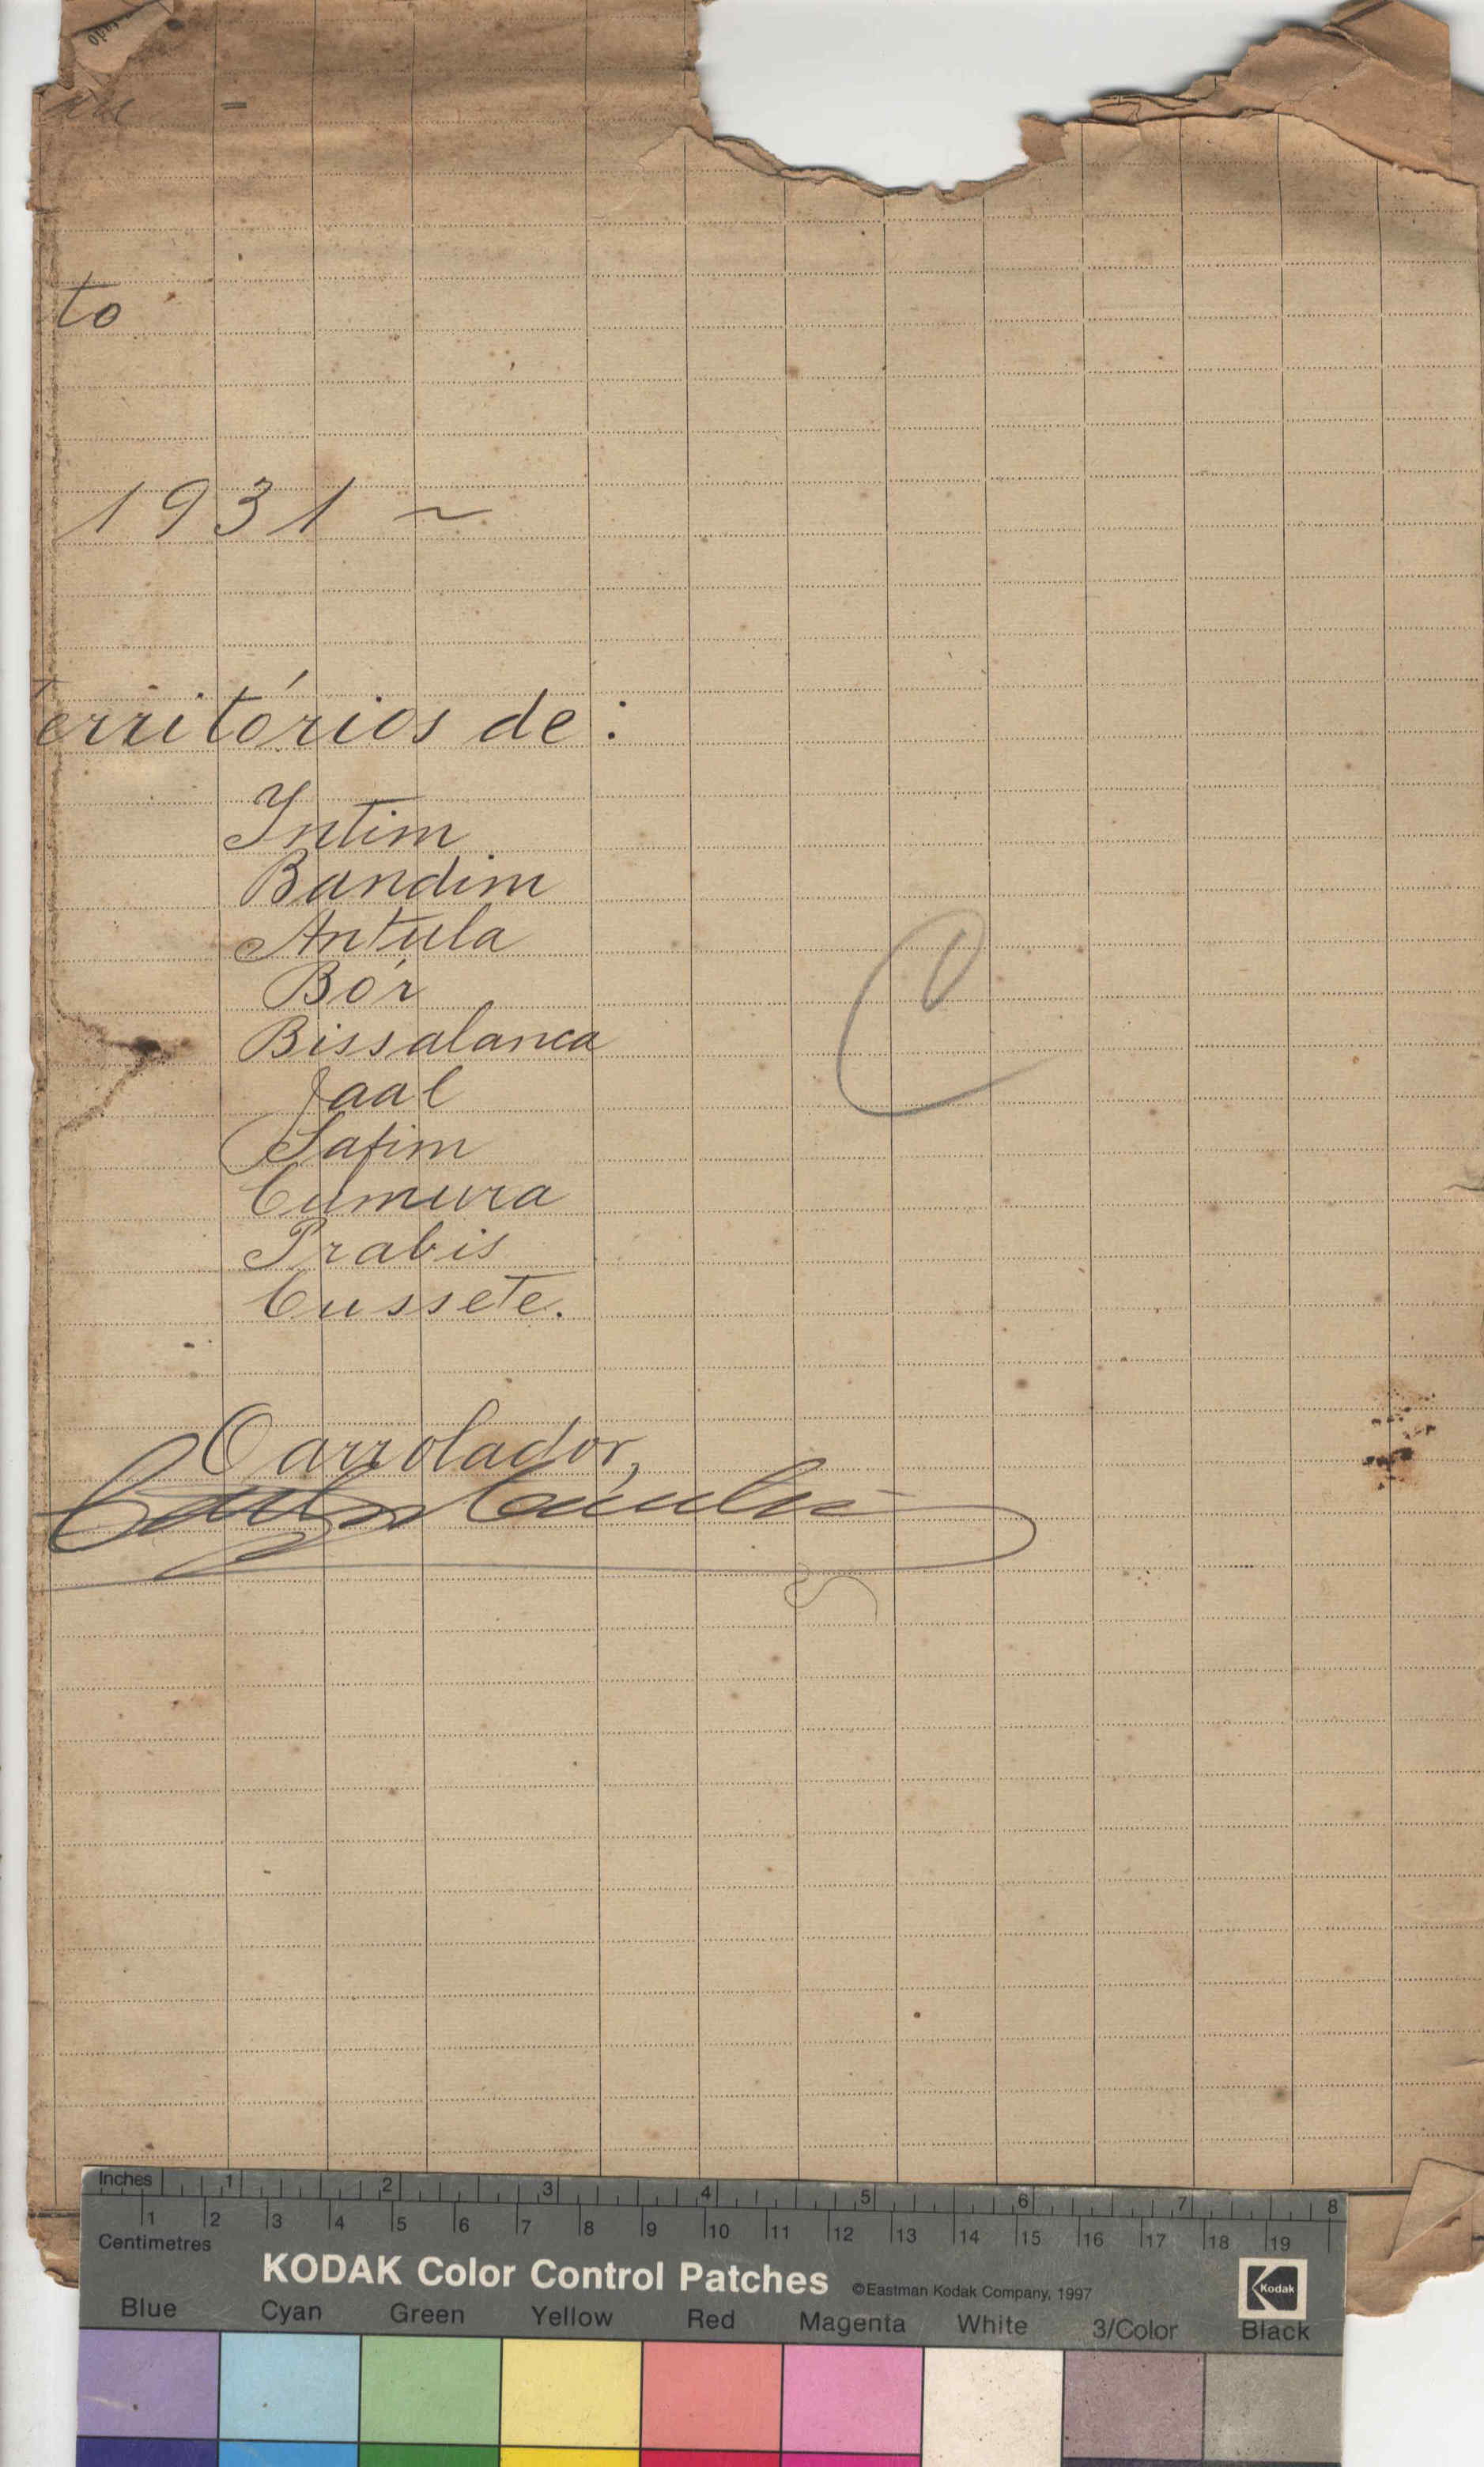 to
1931 ~
Territórios de:
Intim
Bandim
Antula
Bór
Bissalanca
Jaal
Safim
Cumura
Prabis
Cussete.
O arrolador,
Inches 1 2 3 4 5 6 7 8
1 2 3 4 5 6 7 8 9 10 11 12 13 14 15 16 17 18 19
Centimetres
KODAK Color Control Patches ©Eastman Kodak Company, 1997 Kodak
Blue Cyan Green Yellow Red Magenta White 3/Color Black